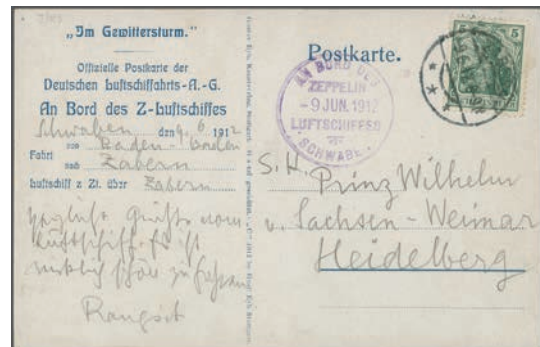 „Im Gewittersturm."
Offizielle Postkarte der
Deutschen Luftschiffahrts-A.-G.
An Bord des Z-Luftschiffes
Schwaben den 9. 6. 1912
Fahrt von Baden-Baden
nach Zabern
Luftschiff z. Zt. über Zabern
Herzliche Grüße vom
Luftschiff. Es ist
wirklich schön zu fahren
Rangsit
Postkarte.
AN BORD DES
ZEPPELIN
-9 JUN. 1912
LUFTSCHIFFES
SCHWABEN
5
S. H. Prinz Wilhelm
v. Sachsen-Weimar
Heidelberg